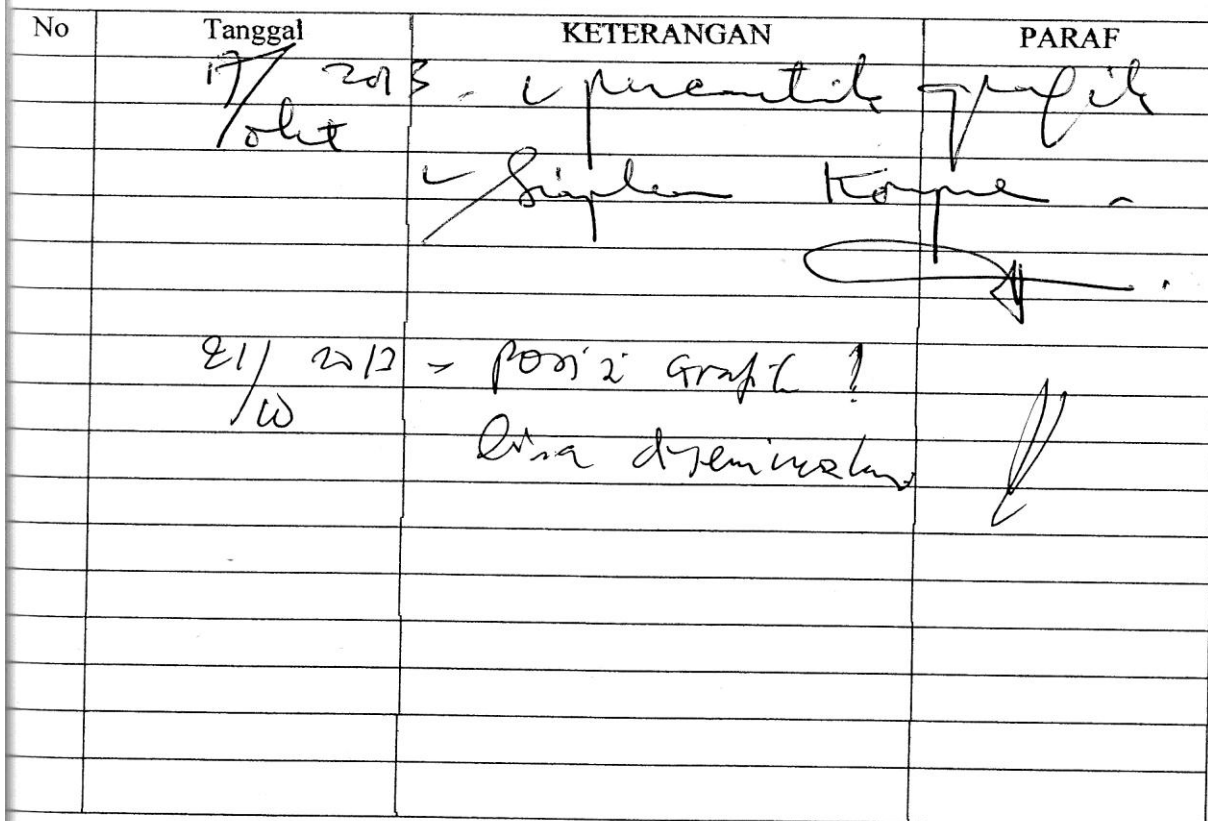 No Tanggal KETERANGAN PARAF
17/okt 2013 - percantik grafik
- Siapkan
21/10 2013 - posisi Grafik !
bisa diseminarkan